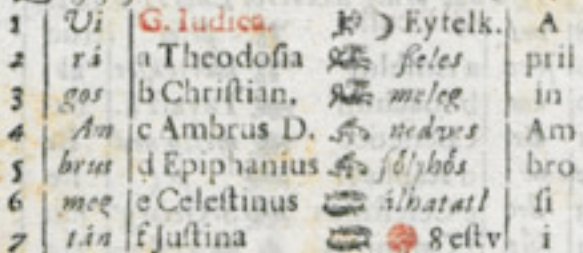 1 Vi G. Iudica. ☽ Eytelk. A
2 rá a Theodoſia ſzeles prii
3 gos b Chriſtian. meleg in
4 Am c Ambrus D. nedves Am
5 brus d Epiphanius bro
6 meg e Celeſtinus álhatatl ſi
7 tán f Juſtina 8 eſtv i